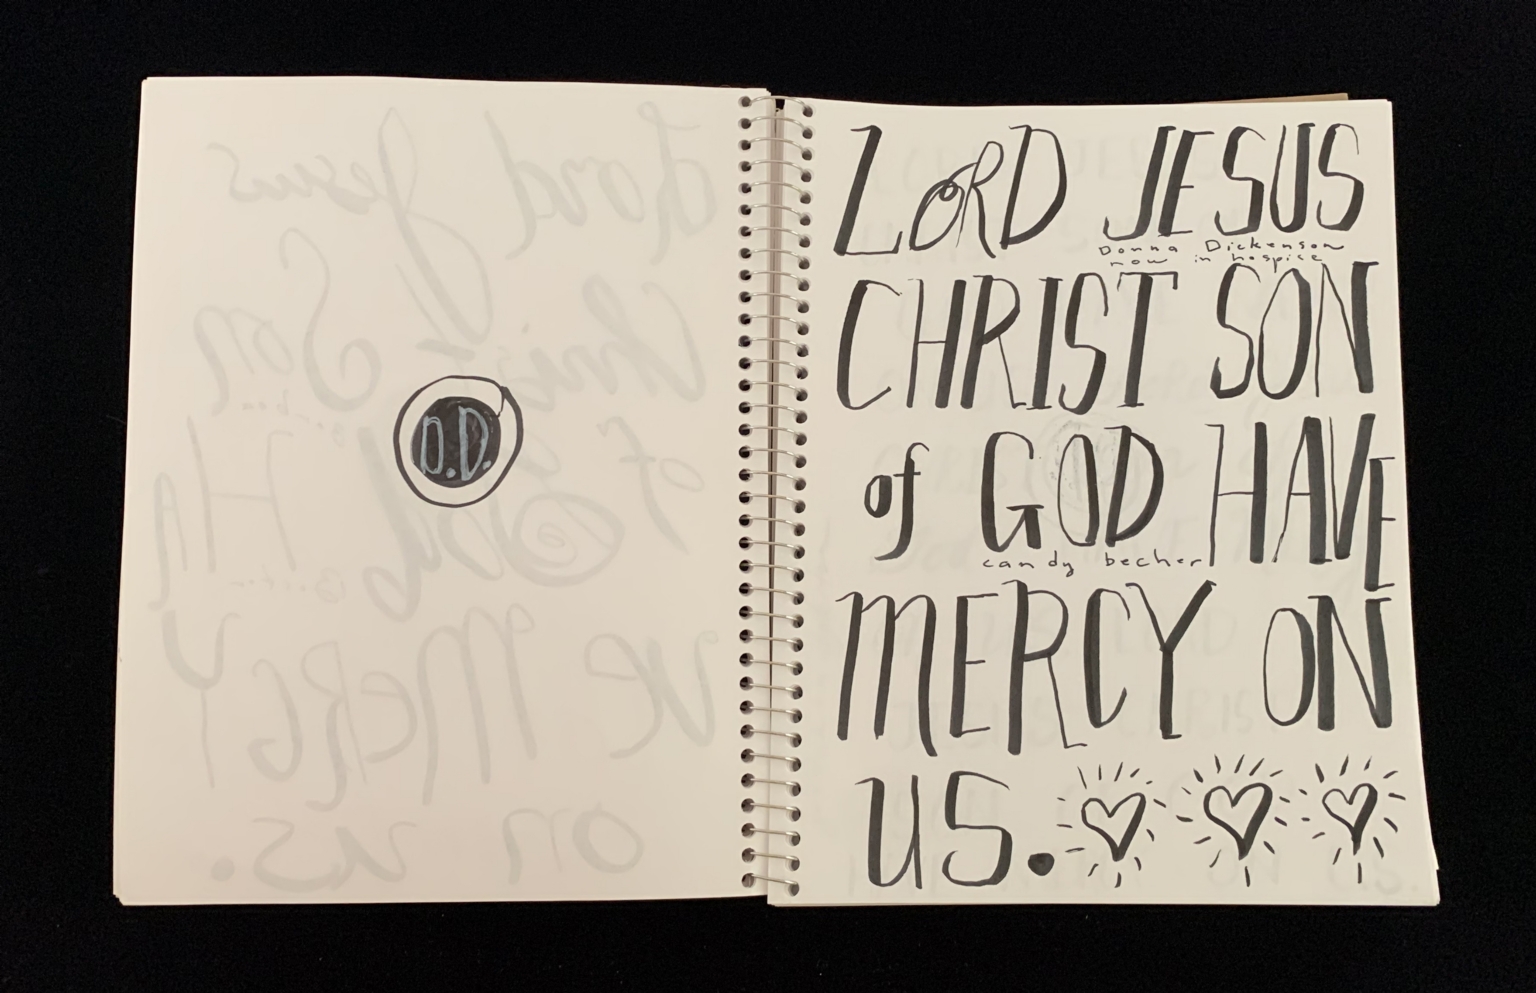 D.D.
LORD JESUS
Donna Dickenson
now in hospice
CHRIST SON
of GOD HAVE
candy becher
MERCY ON
US.